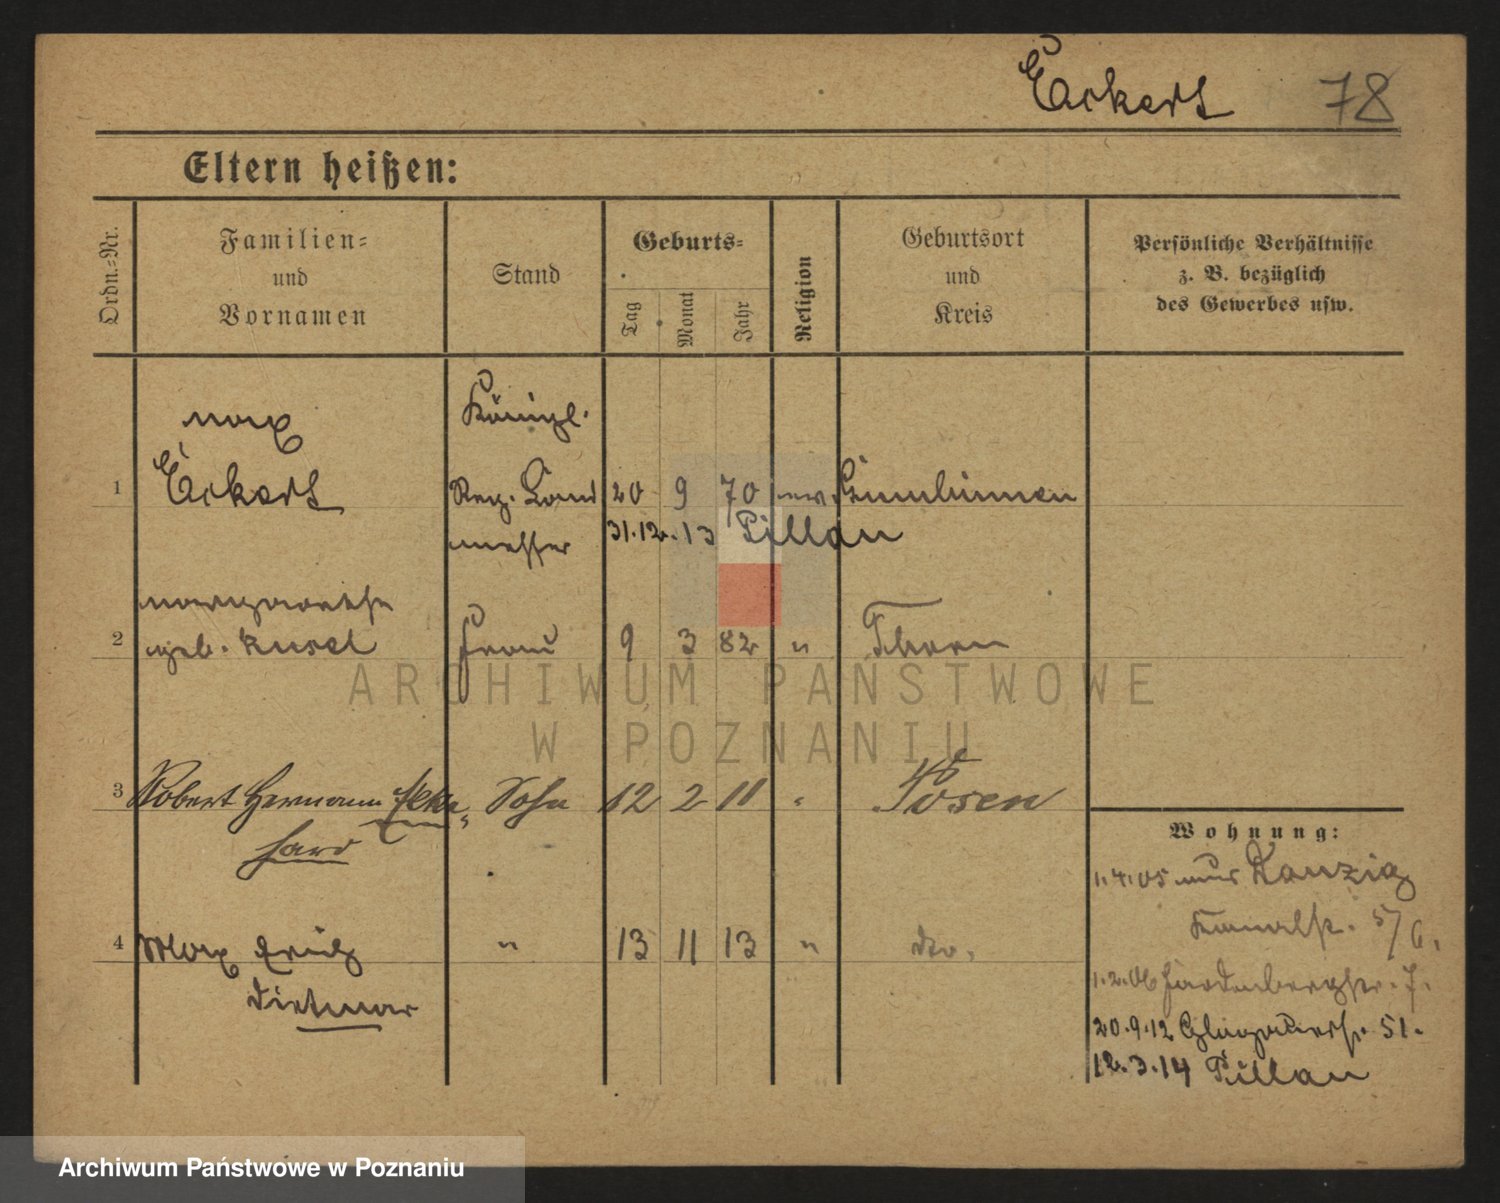 Eckert 78
Eltern heißen:
Ordn.-Nr.
Familien-
und
Vornamen
Stand
Geburts-
Tag
Monat
Jahr
Religion
Geburtsort
und
Kreis
Persönliche Verhältnisse
z. B. bezüglich
des Gewerbes usw.
Max Königl.
1 Eckert Reg. Land 20 9 70 ev. Gumbinnen
messer 31.12.13 Pillau
Margarethe
2 geb. Kusel Frau 9 3 82 " Thorn
3 Robert Hermann Sohn 12 2 11 " Posen
hard
4 Max Erich " 13 11 13 " dto.
Dietmar
Wohnung:
1.4.05 aus Danzig
Kanalstr. 5/6.
1.2.06 Hardenbergstr. 7.
20.9.12 51.
12.3.14 Pillau
ARCHIWUM PAŃSTWOWE
W POZNANIU
Archiwum Państwowe w Poznaniu